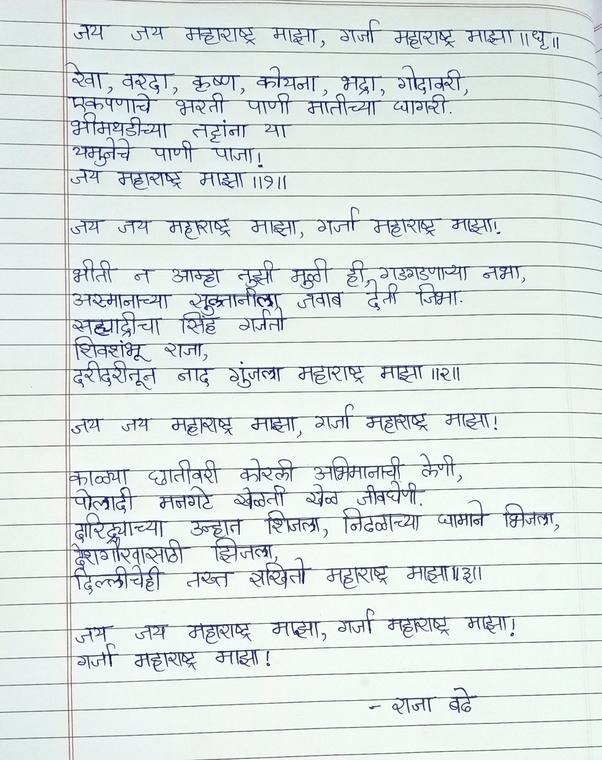 जय जय महाराष्ट्र माझा, गर्जा महाराष्ट्र माझा ॥धृ॥
रेवा, वरदा, कृष्ण, कोयना, भद्रा, गोदावरी,
एकपणाचे भरती पाणी मातीच्या घागरी.
भीमथडीच्या तट्टांना या
यमुनेचे पाणी पाजा!
जय महाराष्ट्र माझा ॥१॥
जय जय महाराष्ट्र माझा, गर्जा महाराष्ट्र माझा!
भीती न आम्हा तुझी मुळी ही, गडगडणाऱ्या नभा,
अस्मानाच्या सुलतानीला, जवाब देती जिभा.
सह्याद्रीचा सिंह गर्जतो
शिवशंभू राजा,
दरीदरीतून नाद गुंजला महाराष्ट्र माझा ॥२॥
जय जय महाराष्ट्र माझा, गर्जा महाराष्ट्र माझा!
काळ्या छातीवरी कोरली अभिमानाची लेणी,
पोलादी मनगटे खेळती खेळ जीवघेणी.
दारिद्र्याच्या उन्हात शिजला, निढळाच्या घामाने भिजला,
देशगौरवासाठी झिजला,
दिल्लीचेही तख्त राखितो महाराष्ट्र माझा॥३॥
जय जय महाराष्ट्र माझा, गर्जा महाराष्ट्र माझा!
गर्जा महाराष्ट्र माझा!
- राजा बढे